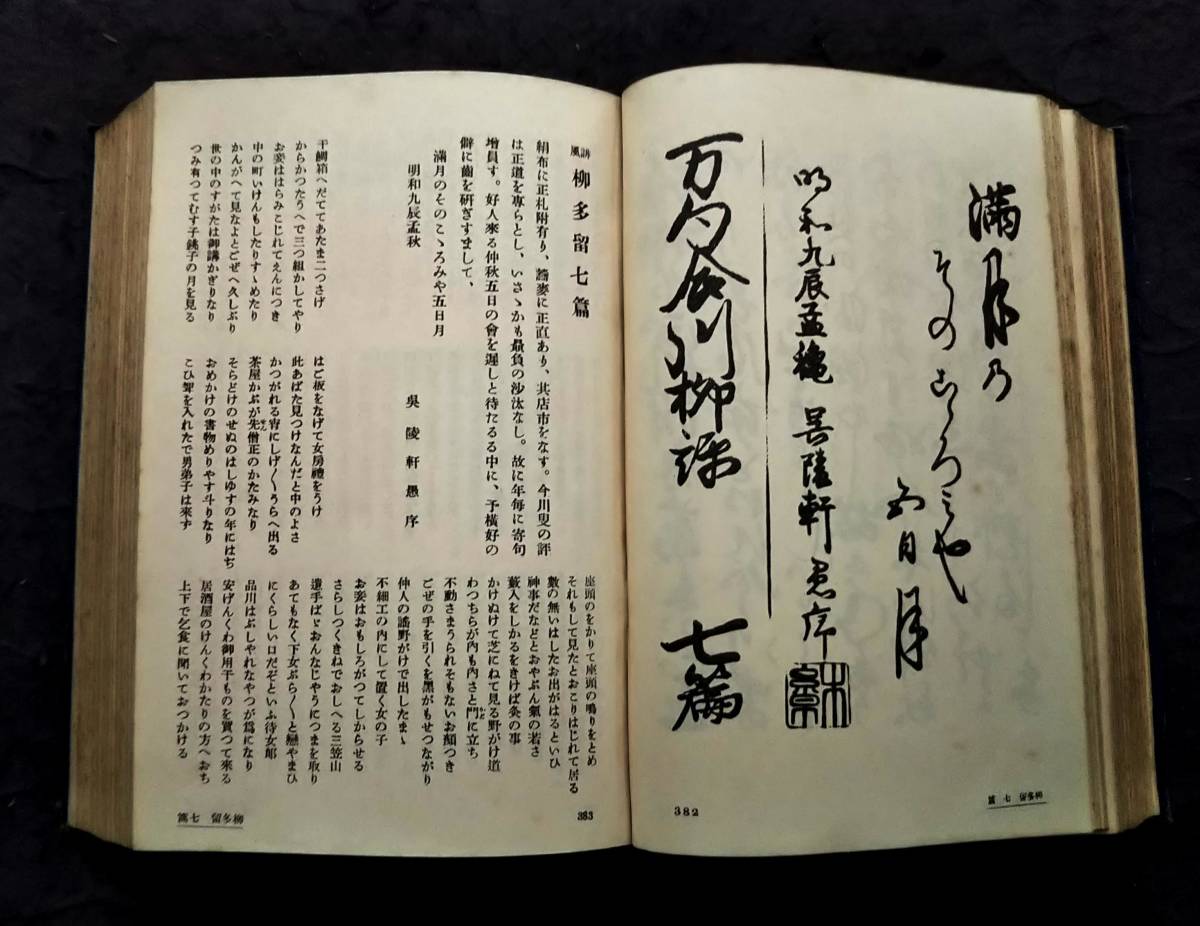 滿月の
そのこゝろみや
五日月
明和九辰孟穐 呉陵軒愚序
万句合川柳評 七篇
382
柳多留 七篇
誹風 柳多留七篇
絹布に正札附有り、蕎麥に正直あり、其店市をなす。今川叟の評
は正道を專らとし、いさゝかも贔負の沙汰なし。故に年毎に寄句
增員す。好人來る仲秋五日の會を遲しと待たるる中に、予橫好の
僻に齒を硏ぎすまして、
滿月のそのこゝろみや五日月
明和九辰孟秋
吳陵軒愚序
干鯛箱へだててあたま二つさげ
からかつたうへで三つ組かしてやり
お妾ははらみこじれてえんにつき
中の町いけんもしたりすゝめたり
かんがへて見なよとごぜへ久しぶり
世の中のすがたは御講かぎりなり
つみ有つてむす子銚子の月を見る
はご板をなげて女房禮をうけ
此あばた見つけなんだと中のよさ
かつがれる宵にしげ/\うらへ出る
茶屋かぶが先僧正のかたみなり
そらどけのせぬのはしゆすの年にはぢ
おめかけの書物めりやす斗りなり
こひ聟を入れたで男弟子は來ず
座頭のをかりて座頭の鳴りをとめ
それもして見たとおこりはじれて居る
數の無いはしたお出がはるといひ
神事だなどとおやぶん氣の若さ
藪入をしかるをきけば灸の事
かけぬけて芝にねて見る野がけ道
わつちらが內も內さと門に立ち
不動さまうられそもないお顏つき
ごぜの手を引くを黑がもせつながり
仲人の謠野がけで出したまゝ
不細工の內にして置く女の子
お妾はおもしろがつてしからせる
さらしつくきねでおしへる三笠山
遣手ばゞおんなじやうにつまを取り
あてもなく下女ぶら/\と戀やまひ
にくらしい口だぞといふ待女郎
品川はぶしやれなやつが爲になり
安げんくわ御用干ものを買つて來る
居酒屋のけんくわかたりの方へおち
上下で乞食に聞いておつかける
383
柳多留 七篇